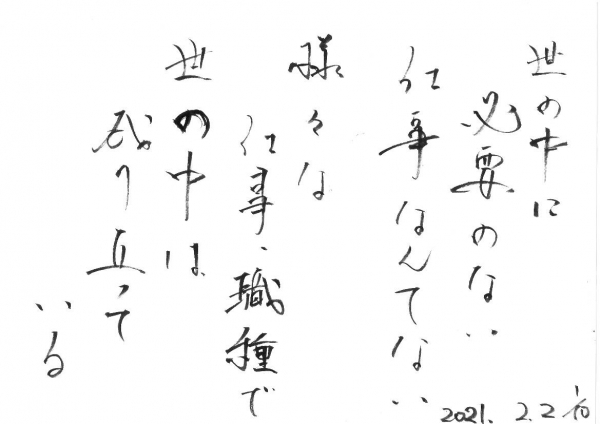 世の中に
必要のない
仕事なんてない
様々な
仕事、職種で
世の中は
成り立って
いる
2021. 2.2